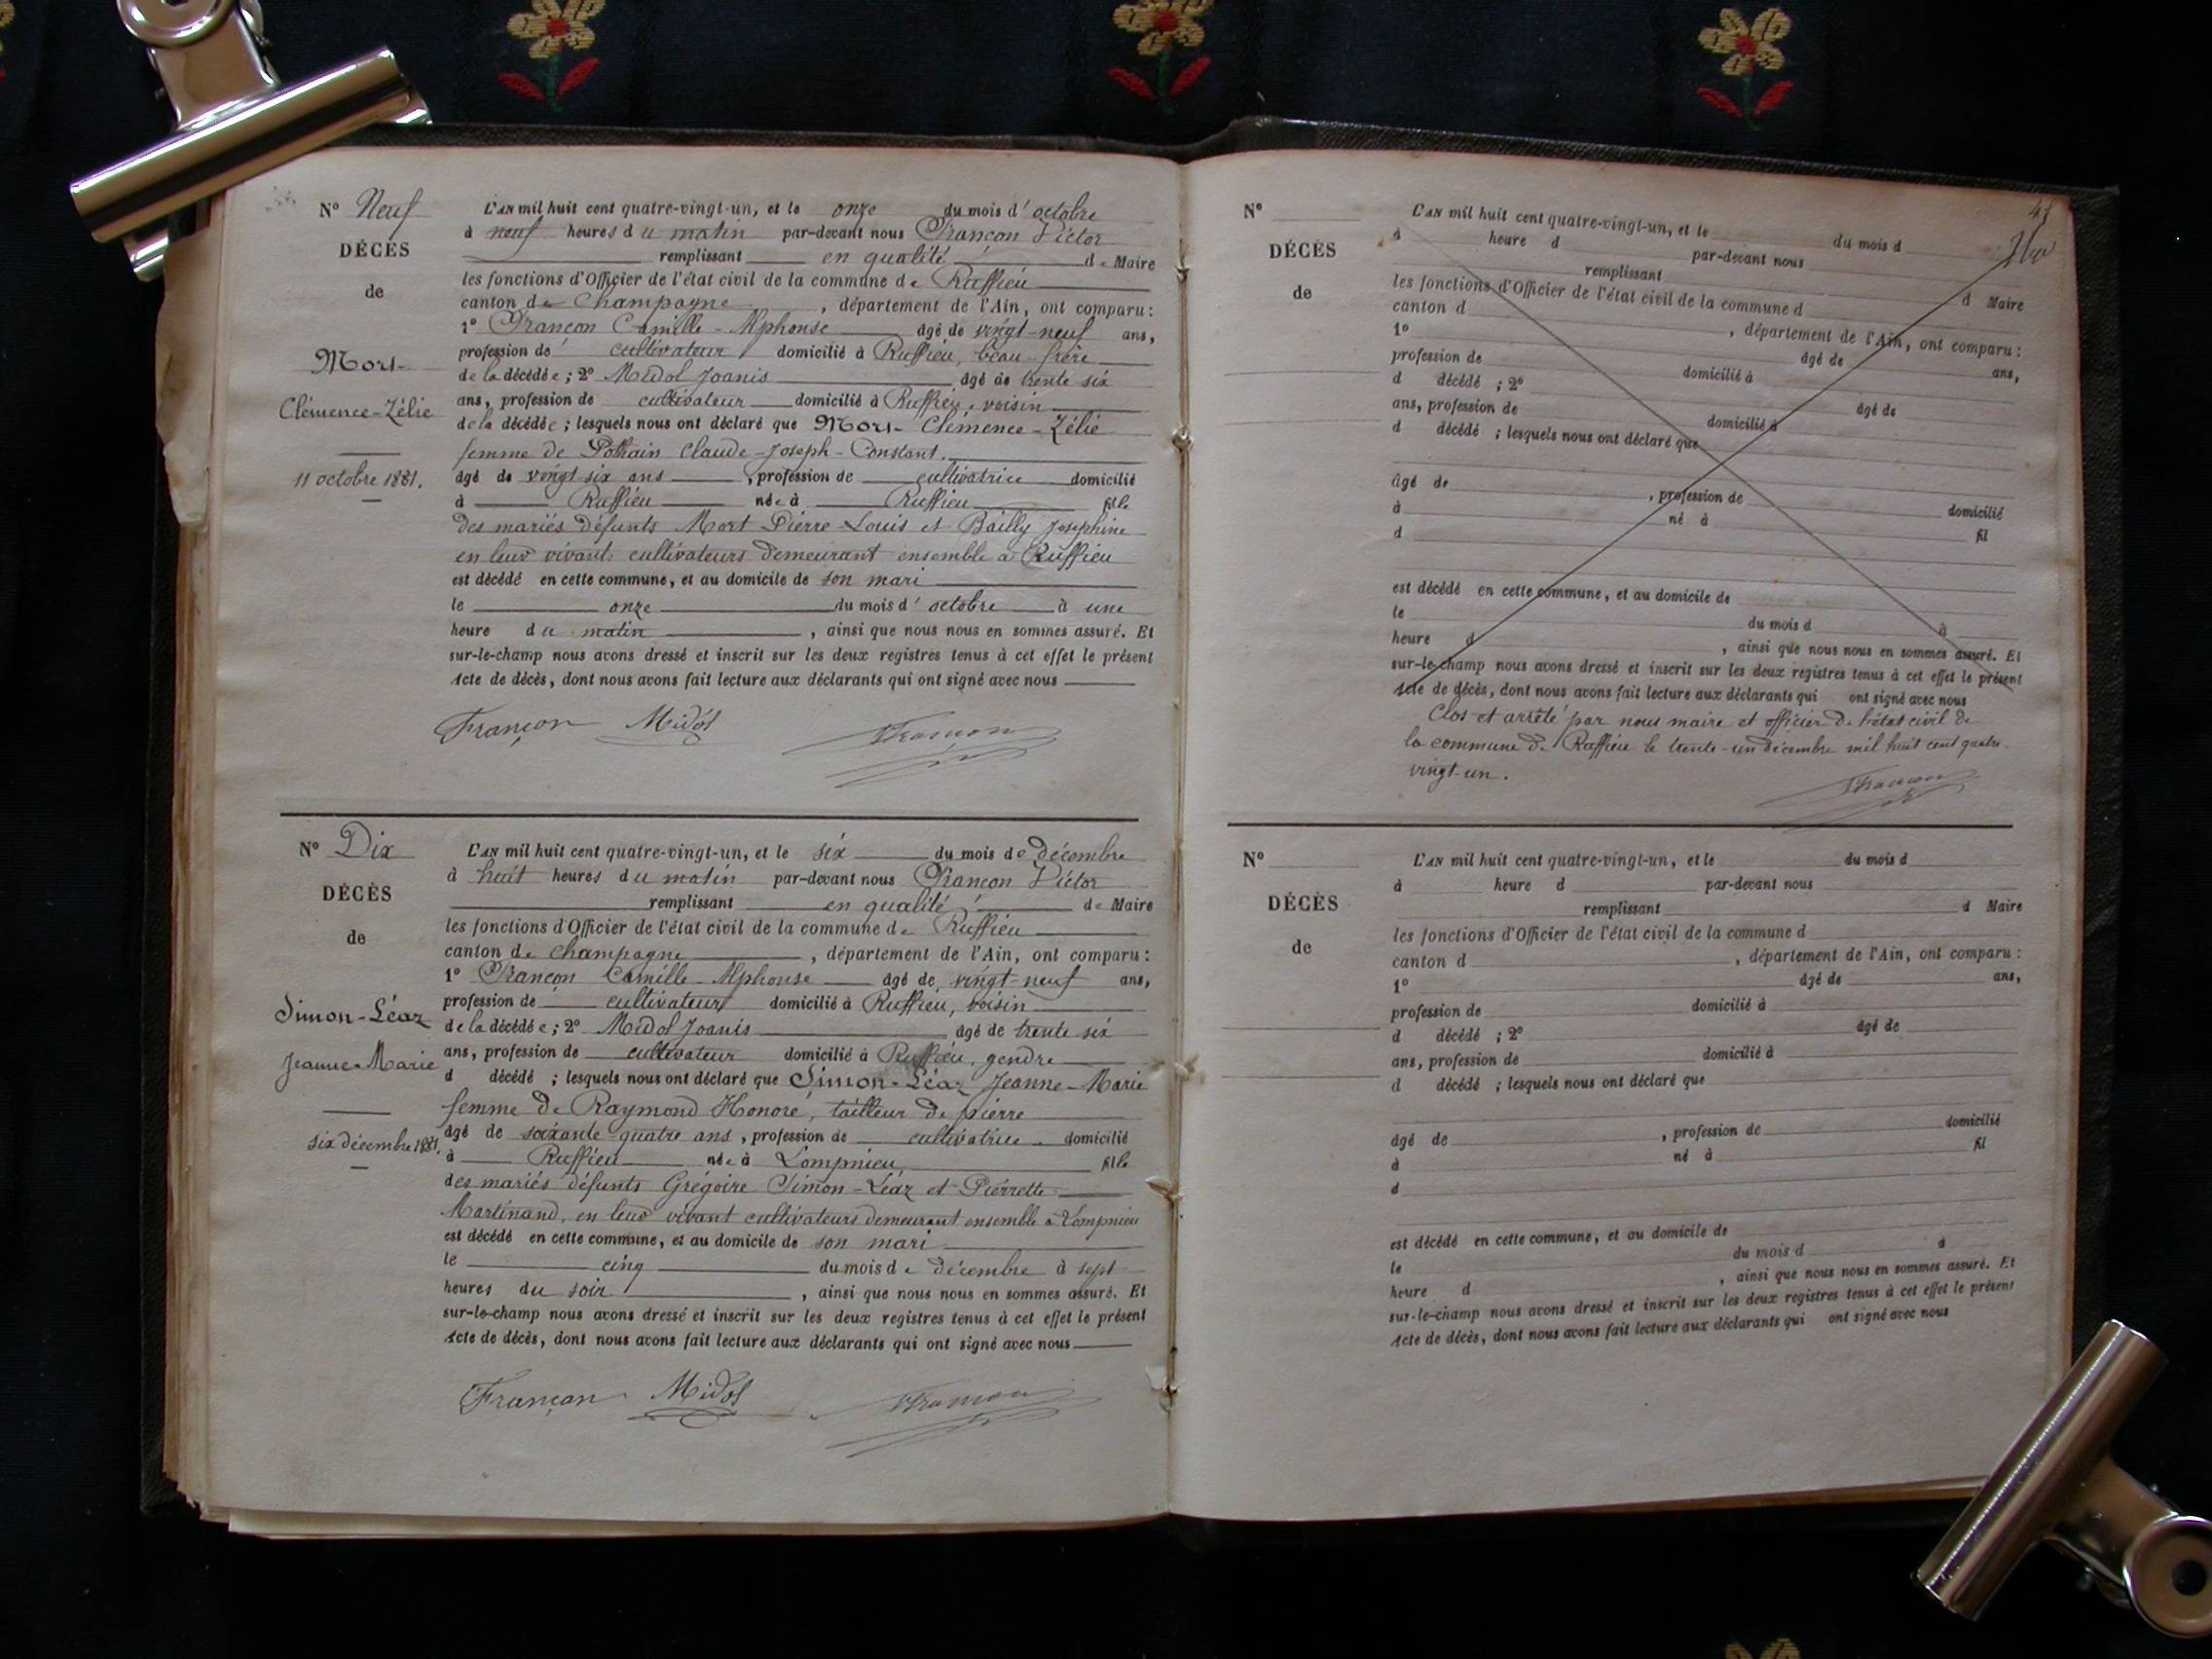 N° Neuf
DÉCÈS
de
Mort
Clémence-Zélie
11 octobre 1881.
L'AN mil huit cent quatre-vingt-un, et le onze du mois d'octobre
à neuf heures du matin par-devant nous Françon Victor
remplissant en qualité de Maire
les fonctions d'Officier de l'état civil de la commune de Ruffieu
canton de Champagne, département de l'Ain, ont comparu:
1° Françon Camille-Alphonse âgé de vingt-neuf ans,
profession de cultivateur domicilié à Ruffieu, beau-frère
de la décédée; 2° Midol Joanis âgé de trente six
ans, profession de cultivateur domicilié à Ruffieu, voisin
de la décédée; lesquels nous ont déclaré que Mort Clémence-Zélie
femme de Claude-Joseph-Constant.
âgé de vingt six ans, profession de cultivatrice domicilié
à Ruffieu née à Ruffieu fille
des mariés défunts Mort Pierre-Louis et Bailly Josephine
en leur vivant cultivateurs demeurant ensemble à Ruffieu
est décédé en cette commune, et au domicile de son mari
le onze du mois d'octobre à une
heure du matin, ainsi que nous nous en sommes assuré. Et
sur-le-champ nous avons dressé et inscrit sur les deux registres tenus à cet effet le présent
acte de décès, dont nous avons fait lecture aux déclarants qui ont signé avec nous
Françon Midol Françon
N° Dix
DÉCÈS
de
Simon-Léaz
Jeanne-Marie
six décembre 1881.
L'AN mil huit cent quatre-vingt-un, et le six du mois de décembre
à huit heures du matin par-devant nous Françon Victor
remplissant en qualité de Maire
les fonctions d'Officier de l'état civil de la commune de Ruffieu
canton de Champagne, département de l'Ain, ont comparu:
1° Françon Camille-Alphonse âgé de vingt-neuf ans,
profession de cultivateur domicilié à Ruffieu, voisin
de la décédée; 2° Midol Joanis âgé de trente six
ans, profession de cultivateur domicilié à Ruffieu, gendre
d décédé; lesquels nous ont déclaré que Simon-Léaz Jeanne-Marie
femme de Raymond Honoré, tailleur de pierre
âgé de soixante-quatre ans, profession de cultivatrice domicilié
à Ruffieu née à Lompnieu fille
des mariés défunts Grégoire Simon-Léaz et Pierrette
Martinand, en leur vivant cultivateurs demeurant ensemble à Lompnieu
est décédé en cette commune, et au domicile de son mari
le cinq du mois de décembre à sept
heures du soir, ainsi que nous nous en sommes assuré. Et
sur-le-champ nous avons dressé et inscrit sur les deux registres tenus à cet effet le présent
acte de décès, dont nous avons fait lecture aux déclarants qui ont signé avec nous
Françon Midol Françon
N°
DÉCÈS
de
L'AN mil huit cent quatre-vingt-un, et le du mois d
à heure d par-devant nous
remplissant d Maire
les fonctions d'Officier de l'état civil de la commune d
canton d, département de l'Ain, ont comparu:
1° âgé de ans,
profession de domicilié à
d décédé; 2° âgé de
ans, profession de domicilié à
d décédé; lesquels nous ont déclaré que
âgé de, profession de domicilié
à né à fil
d
est décédé en cette commune, et au domicile de
le du mois d à
heure d, ainsi que nous nous en sommes assuré. Et
sur-le-champ nous avons dressé et inscrit sur les deux registres tenus à cet effet le présent
acte de décès, dont nous avons fait lecture aux déclarants qui ont signé avec nous
Clos et arrêté par nous maire et officier de l'état civil de
la commune de Ruffieu le trente-un décembre mil huit cent quatre-
vingt-un.
Françon
N°
DÉCÈS
de
L'AN mil huit cent quatre-vingt-un, et le du mois d
à heure d par-devant nous
remplissant d Maire
les fonctions d'Officier de l'état civil de la commune d
canton d, département de l'Ain, ont comparu:
1° âgé de ans,
profession de domicilié à
d décédé; 2° âgé de
ans, profession de domicilié à
d décédé; lesquels nous ont déclaré que
âgé de, profession de domicilié
à né à fil
d
est décédé en cette commune, et au domicile de
le du mois d à
heure d, ainsi que nous nous en sommes assuré. Et
sur-le-champ nous avons dressé et inscrit sur les deux registres tenus à cet effet le présent
acte de décès, dont nous avons fait lecture aux déclarants qui ont signé avec nous